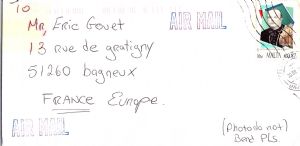 TO
Mr, Eric Gouet
13 rue de gratigny
51260 bagneux
FRANCE Europe.
AIR MAIL
AIR MAIL
(Photos do not)
Bend Pls.